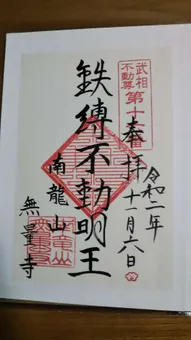 武相
不動尊
第十番
奉拝
令和二年
十一月六日
鉄縛不動明王
南龍山
無量寺